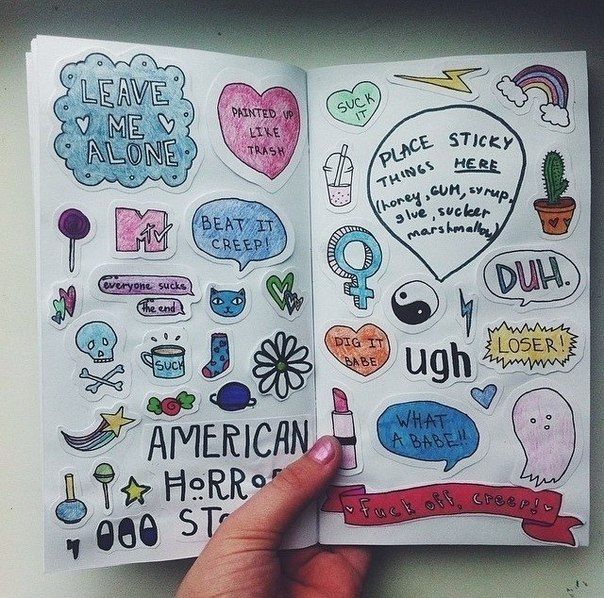 LEAVE
ME
ALONE
PAINTED UP
LIKE
TRASH
MTV
BEAT IT
CREEP!
everyone sucks
the end
SUCK
AMERICAN
HoRRo
ST
SUCK
IT
PLACE STICKY
THINGS HERE
(honey, GUM, syrup,
glue, sucker
marshmallow)
DUH.
DIG IT
BABE
ugh
LOSER!
WHAT
A BABE!!
Fuck off, creep!